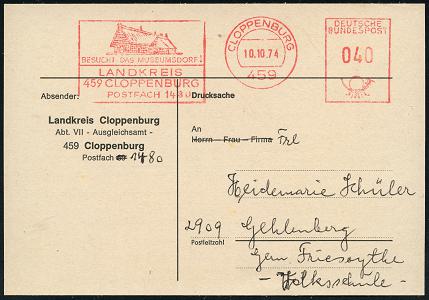 BESUCHT DAS MUSEUMSDORF!
LANDKREIS
459 CLOPPENBURG
POSTFACH 1480
CLOPPENBURG
10.10.74
459
DEUTSCHE
BUNDESPOST
040
Absender:
Drucksache
Landkreis Cloppenburg
Abt. VII - Ausgleichsamt -
459 Cloppenburg
Postfach 1480
An
Herrn - Frau - Firma Frl
Heidemarie Schüler
2909 Gehlenberg
Postleitzahl
Gem. Friesoythe
- Volksschule -